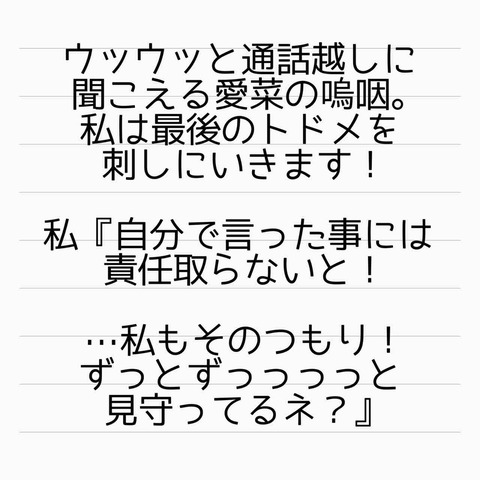 ウッウッと通話越しに
聞こえる愛菜の嗚咽。
私は最後のトドメを
刺しにいきます！
私『自分で言った事には
責任取らないと！
…私もそのつもり！
ずっとずっっっっと
見守ってるネ？』